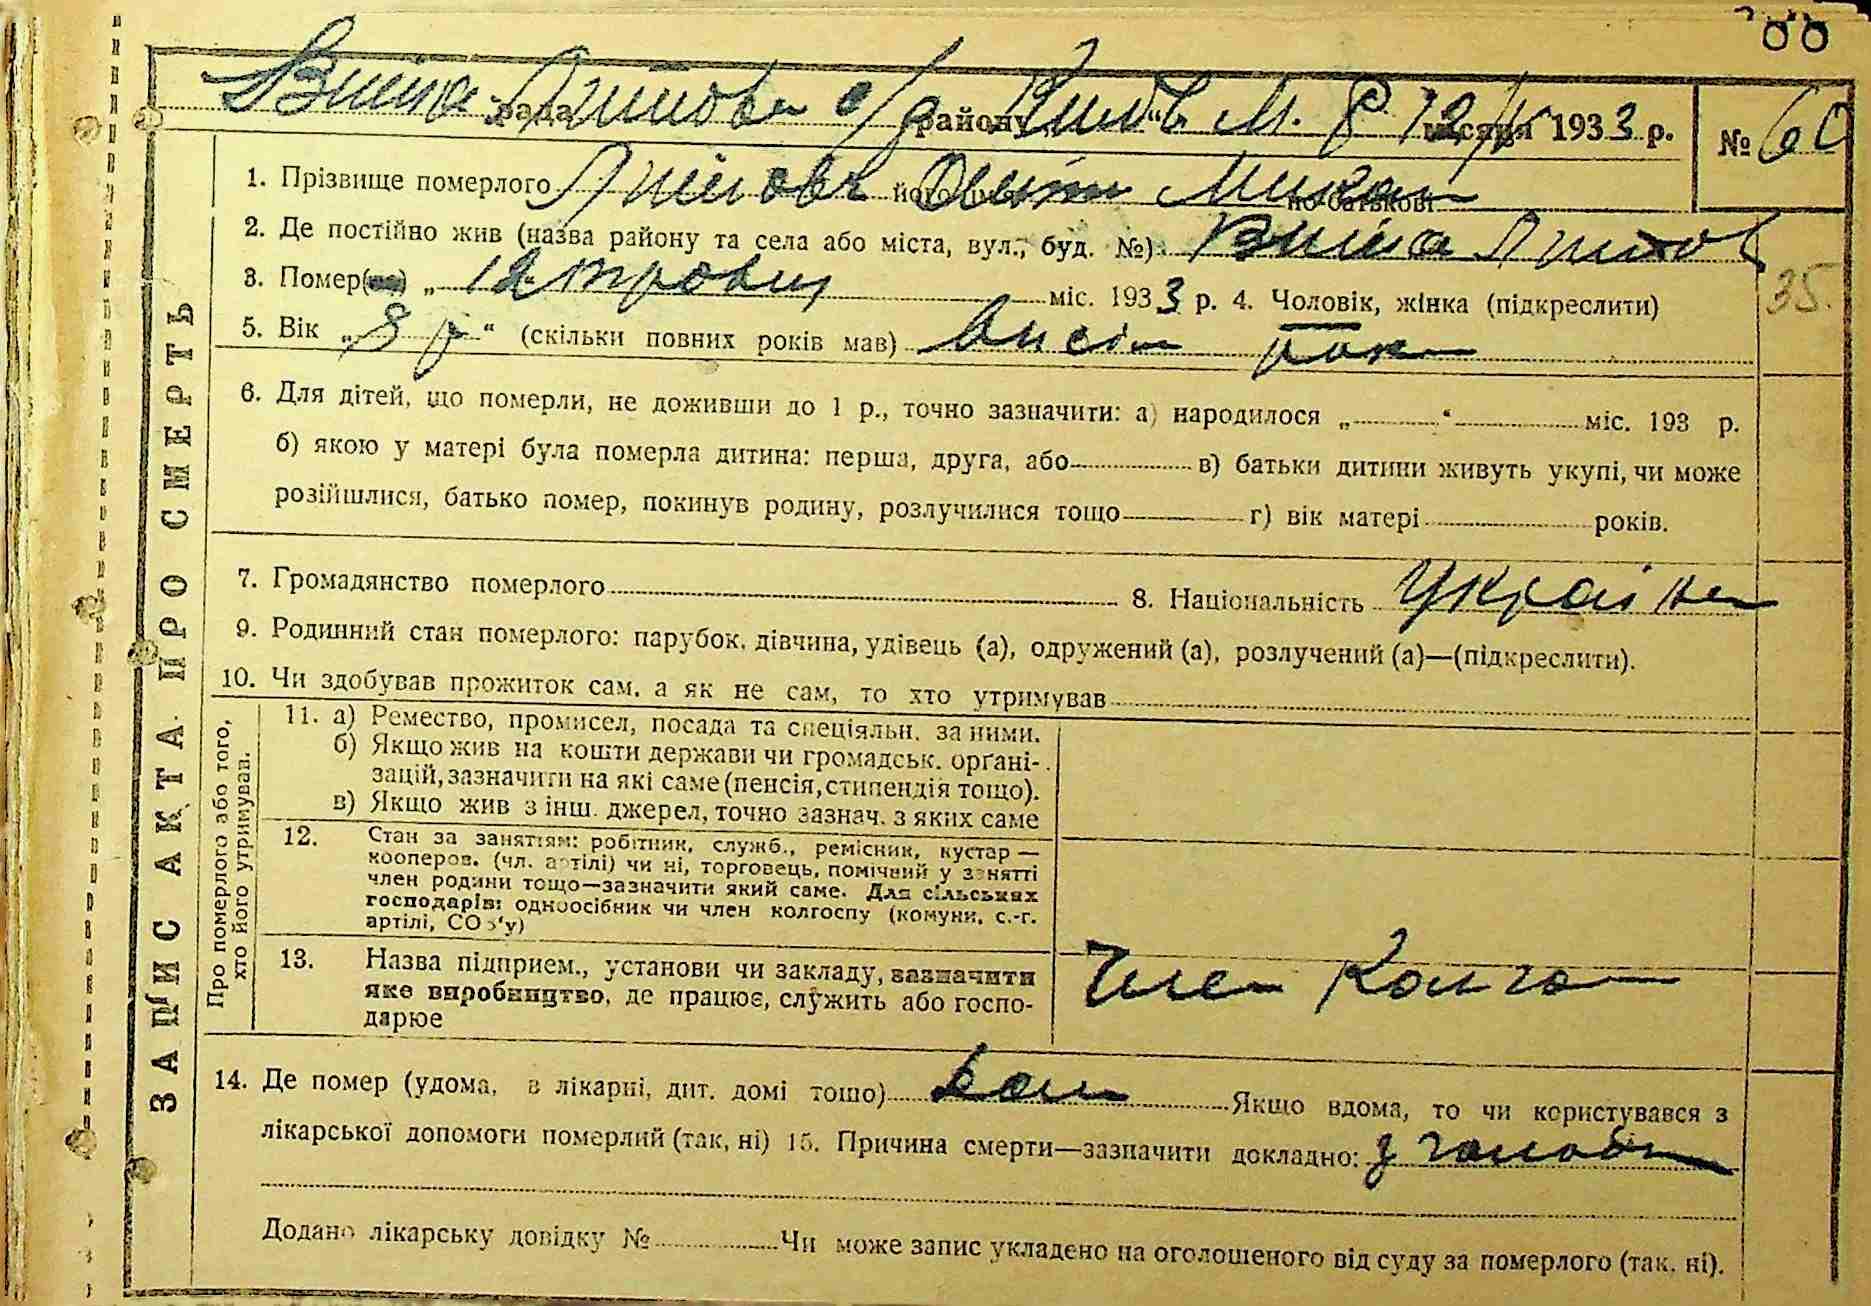 рада району місяця 1933 р. № 60
1. Прізвище померлого його ім'я по батькові
2. Де постійно жив (назва району та села або міста, вул., буд. №)
3. Помер(ла) „ 12 міс. 1933 р. 4. Чоловік, жінка (підкреслити)
35.
5. Вік „8 р“ (скільки повних років мав) висім рок
6. Для дітей, що померли, не доживши до 1 р., точно зазначити: а) народилося „ “ міс. 193 р.
б) якою у матері була померла дитина: перша, друга, або в) батьки дитини живуть укупі, чи може
розійшлися, батько помер, покинув родину, розлучилися тощо г) вік матері років.
7. Громадянство померлого 8. Національність Україн
9. Родинний стан померлого: парубок, дівчина, удівець (а), одружений (а), розлучений (а)—(підкреслити).
10. Чи здобував прожиток сам, а як не сам, то хто утримував
ЗАПИС АКТА ПРО СМЕРТЬ
Про померлого або того,
хто його утримував.
11. а) Ремество, промисел, посада та спеціяльн. за ними.
б) Якщо жив на кошти держави чи громадськ. орґані-
зацій, зазначити на які саме (пенсія, стипендія тощо).
в) Якщо жив з інш. джерел, точно зазнач. з яких саме
12. Стан за заняттям: робітник, служб., ремісник, кустар —
кооперов. (чл. артілі) чи ні, торговець, помічний у занятті
член родини тощо—зазначити який саме. Для сільських
господарів: одноосібник чи член колгоспу (комуни, с.-г.
артілі, СОЗ'у)
13. Назва підприєм., установи чи закладу, зазначити
яке виробництво, де працює, служить або госпо-
дарює
Член Колго
14. Де помер (удома, в лікарні, дит. домі тощо) Якщо вдома, то чи користувався з
лікарської допомоги померлий (так, ні) 15. Причина смерти—зазначити докладно: з голоду
Додано лікарську довідку № Чи може запис укладено на оголошеного від суду за померлого (так, ні).